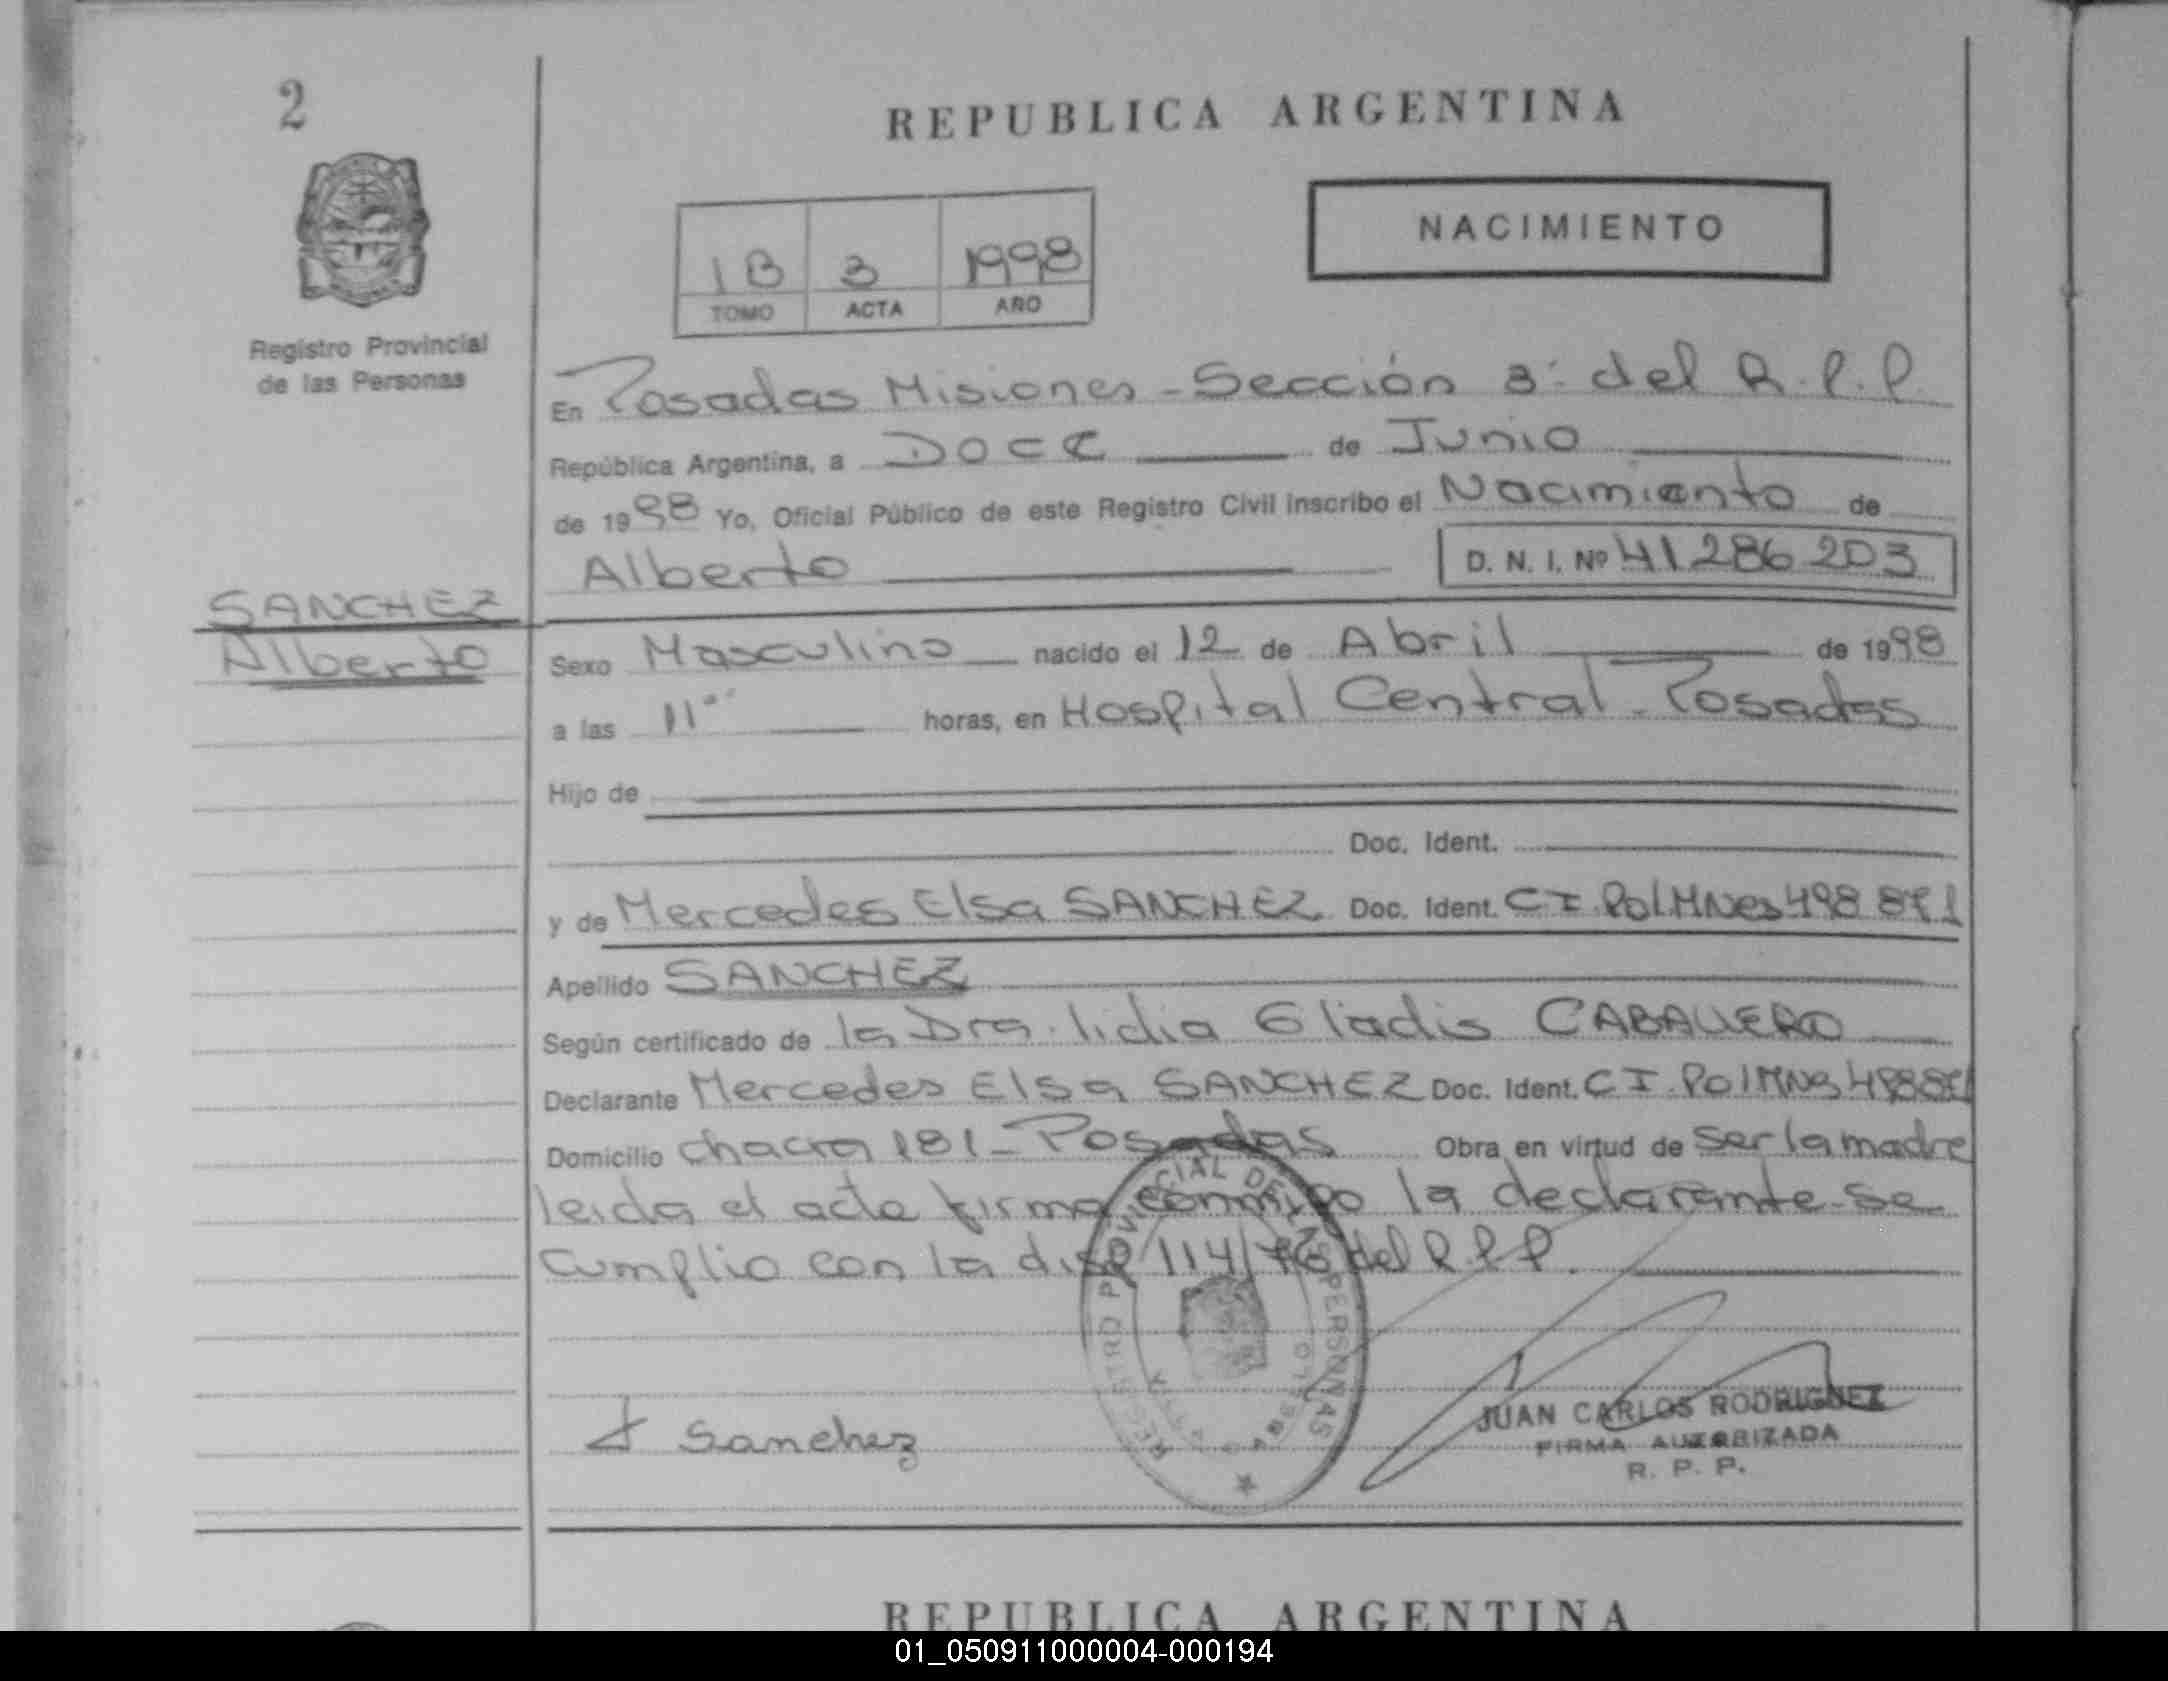 2
REPUBLICA ARGENTINA
NACIMIENTO
1B 3 1998
TOMO ACTA AÑO
Registro Provincial
de las Personas
En Posadas Misiones - Sección 3ª del R.P.P
República Argentina, a DOCE de Junio
de 1998 Yo, Oficial Público de este Registro Civil inscribo el Nacimiento de
Alberto D. N. I. Nº 41286203
SANCHEZ
Alberto
Sexo Masculino nacido el 12 de Abril de 1998
a las 11°° horas, en Hospital Central - Posadas
Hijo de
Doc. Ident.
y de Mercedes Elsa SANCHEZ Doc. Ident. CI. Pol.MNes 498 871
Apellido SANCHEZ
Según certificado de la Dra. lidia Gladis CABALLERO
Declarante Mercedes Elsa SANCHEZ Doc. Ident. CI. Pol MNs
Domicilio chacra 181 - Posadas Obra en virtud de ser la madre
leida el acta firma conmigo la declarante - se
cumplio con la disp 114/76 del R.P.P.
REGISTRO PROVINCIAL DE LAS PERSONAS
Sanchez
JUAN CARLOS RODRIGUEZ
FIRMA AUTORIZADA
R. P. P.
REPUBLICA ARGENTINA
01_050911000004-000194